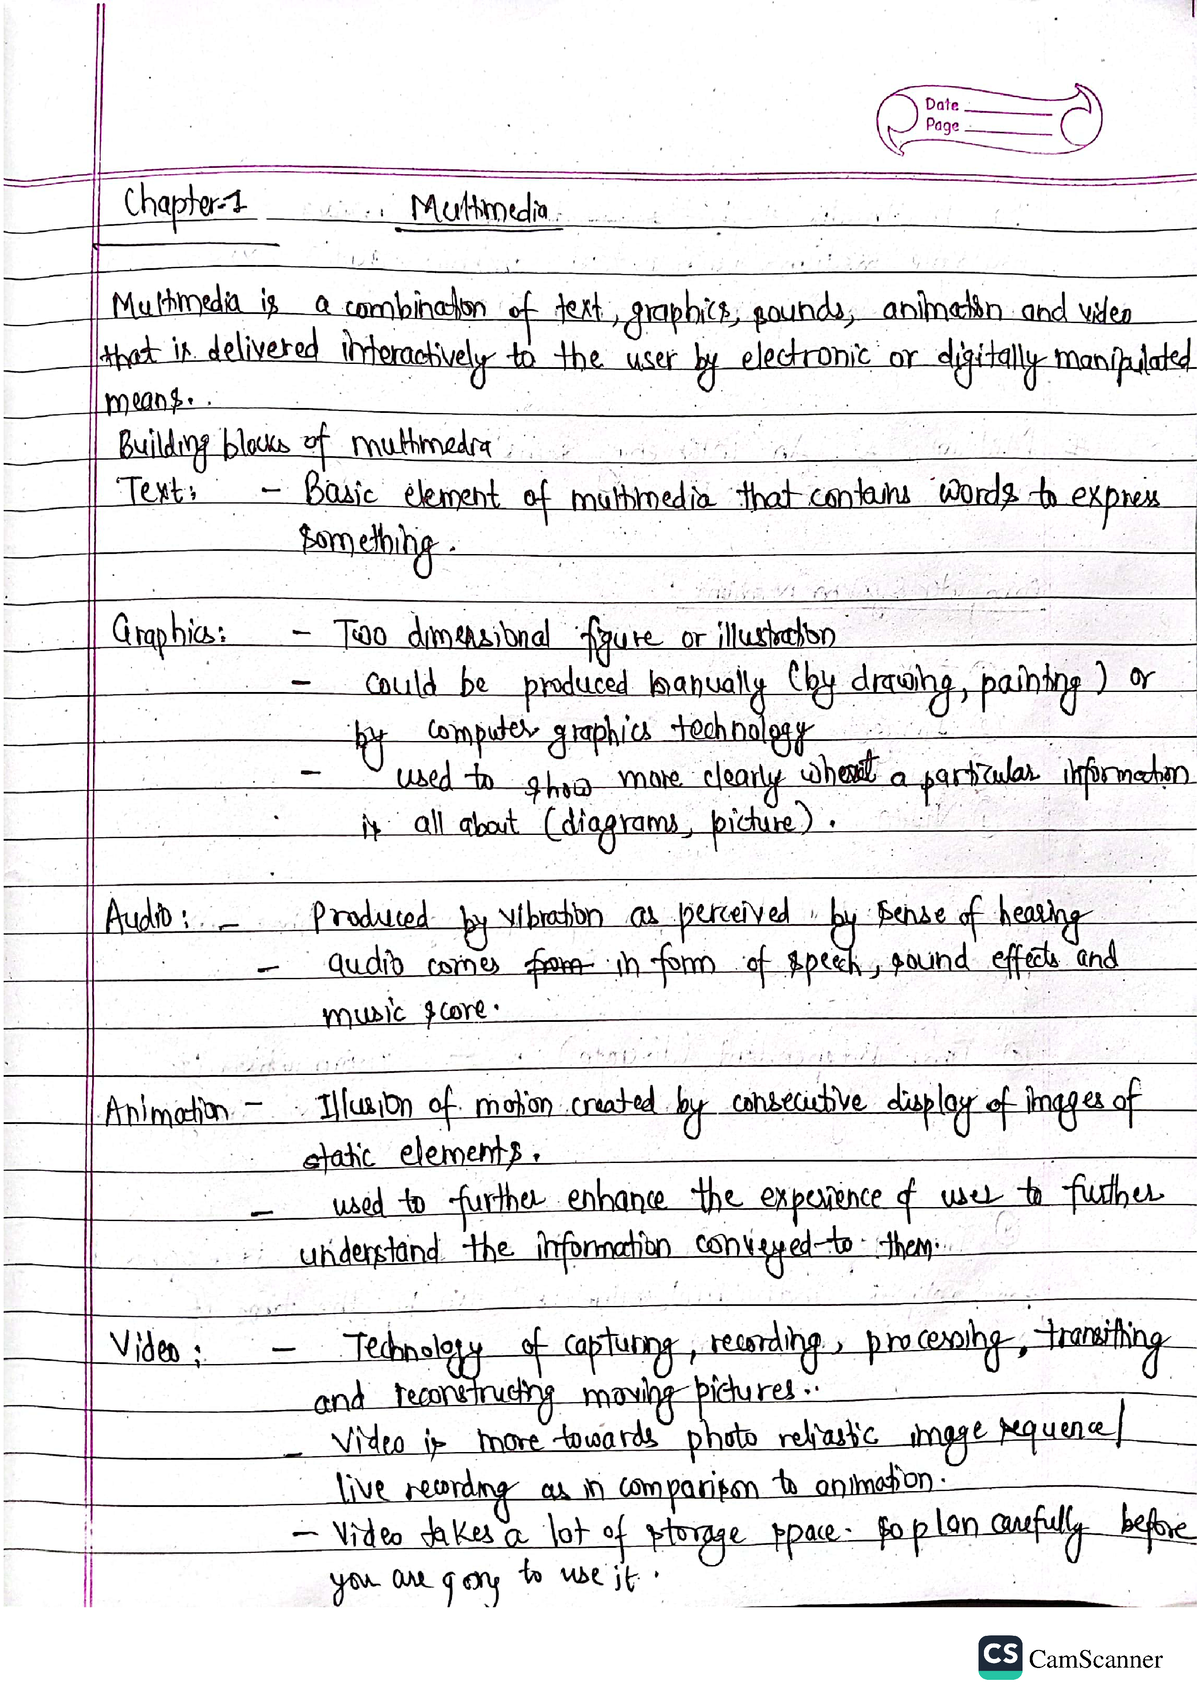 Date
Page
Chapter-1 Multimedia
Multimedia is a combination of text, graphics, sounds, animation and video
that is delivered interactively to the user by electronic or digitally manipulated
means.
Building blocks of multimedia
Text: - Basic element of multimedia that contains words to express
something.
Graphics: - Two dimensional figure or illustration
- could be produced manually (by drawing, painting) or
by computer graphics technology
- used to show more clearly what a particular information
is all about (diagrams, picture).
Audio: - Produced by vibration as perceived by sense of hearing
- audio comes from in form of speech, sound effects and
music score.
Animation - Illusion of motion created by consecutive display of images of
static elements.
- used to further enhance the experience of user to further
understand the information conveyed to them.
Video: - Technology of capturing, recording, processing, transitting
and reconstructing moving pictures..
- Video is more towards photo reliastic image sequence/
live recording as in comparison to animation.
- Video takes a lot of storage space. so plan carefully before
you are going to use it.
CS CamScanner